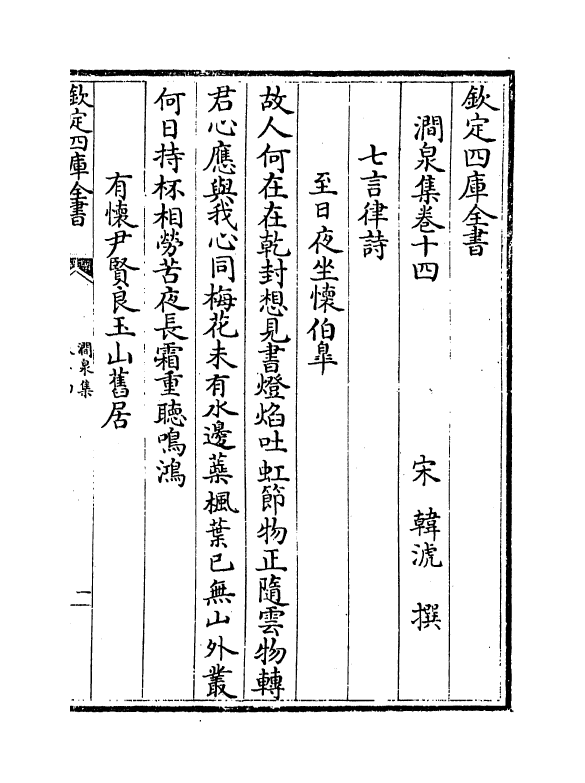 欽定四庫全書
澗泉集卷十四
宋 韓淲 撰
七言律詩
至日夜坐懷伯臯
故人何在在乾封想見書燈焰吐虹節物正隨雲物轉
君心應與我心同梅花未有水邊蘂楓葉已無山外叢
何日持杯相勞苦夜長霜重聽鳴鴻
有懷尹賢良玉山舊居
欽定四庫全書
澗泉集